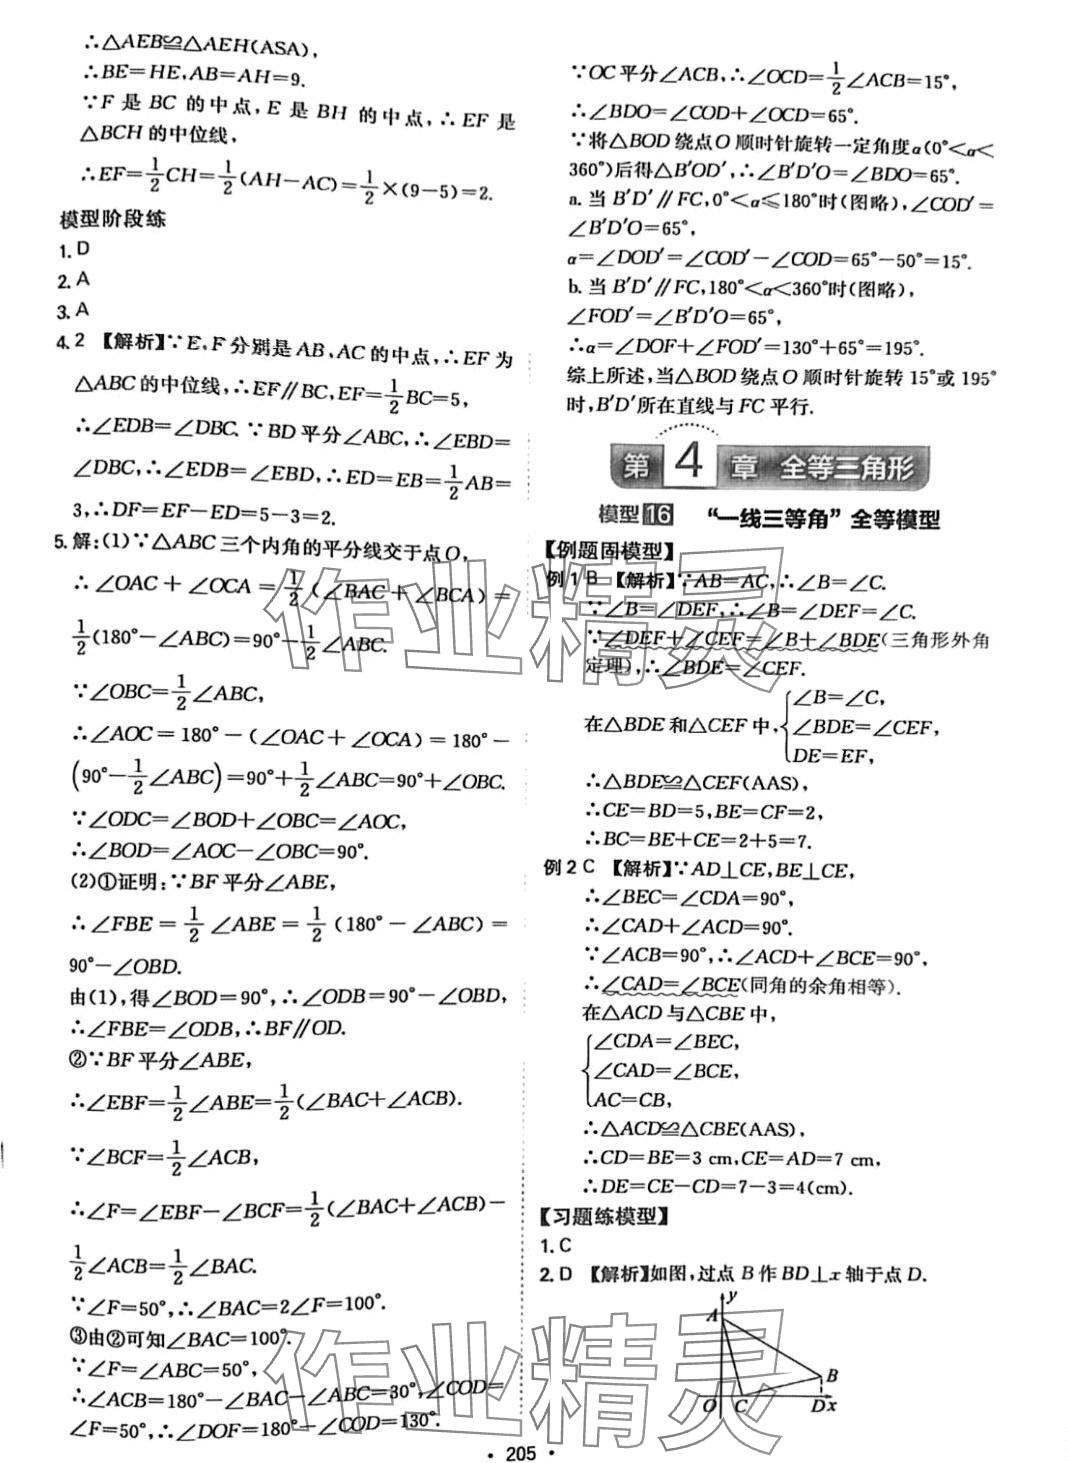 ∴△AEB≌△AEH(ASA),
∴BE=HE,AB=AH=9.
∵F 是 BC 的中点,E 是 BH 的中点,∴EF 是
△BCH 的中位线,
∴EF=1/2CH=1/2(AH-AC)=1/2×(9-5)=2.
模型阶段练
1. D
2. A
3. A
4. 2 【解析】∵E,F 分别是 AB,AC 的中点,∴EF 为
△ABC 的中位线,∴EF∥BC,EF=1/2BC=5,
∴∠EDB=∠DBC. ∵BD 平分∠ABC,∴∠EBD=
∠DBC,∴∠EDB=∠EBD,∴ED=EB=1/2AB=
3,∴DF=EF-ED=5-3=2.
5. 解:(1)∵△ABC 三个内角的平分线交于点 O,
∴∠OAC+∠OCA=1/2(∠BAC+∠BCA)=
1/2(180°-∠ABC)=90°-1/2∠ABC.
∵∠OBC=1/2∠ABC,
∴∠AOC=180°-(∠OAC+∠OCA)=180°-
(90°-1/2∠ABC)=90°+1/2∠ABC=90°+∠OBC.
∵∠ODC=∠BOD+∠OBC=∠AOC,
∴∠BOD=∠AOC-∠OBC=90°.
(2)①证明:∵BF 平分∠ABE,
∴∠FBE=1/2∠ABE=1/2(180°-∠ABC)=
90°-∠OBD.
由(1),得∠BOD=90°,∴∠ODB=90°-∠OBD,
∴∠FBE=∠ODB,∴BF∥OD.
②∵BF 平分∠ABE,
∴∠EBF=1/2∠ABE=1/2(∠BAC+∠ACB).
∵∠BCF=1/2∠ACB,
∴∠F=∠EBF-∠BCF=1/2(∠BAC+∠ACB)-
1/2∠ACB=1/2∠BAC.
∵∠F=50°,∴∠BAC=2∠F=100°.
③由②可知∠BAC=100°.
∵∠F=∠ABC=50°,
∴∠ACB=180°-∠BAC-∠ABC=30°,∠COD=
∠F=50°,∴∠DOF=180°-∠COD=130°.
∵OC 平分∠ACB,∴∠OCD=1/2∠ACB=15°,
∴∠BDO=∠COD+∠OCD=65°.
∵将△BOD 绕点 O 顺时针旋转一定角度α(0°<α<
360°)后得△B′OD′,∴∠B′D′O=∠BDO=65°.
a. 当 B′D′∥FC,0°<α≤180°时(图略),∠COD′=
∠B′D′O=65°,
α=∠DOD′=∠COD′-∠COD=65°-50°=15°.
b. 当 B′D′∥FC,180°<α<360°时(图略),
∠FOD′=∠B′D′O=65°,
∴α=∠DOF+∠FOD′=130°+65°=195°.
综上所述,当△BOD 绕点 O 顺时针旋转 15°或 195°
时,B′D′所在直线与 FC 平行.
第4章 全等三角形
模型16 “一线三等角”全等模型
【例题固模型】
例 1 B 【解析】∵AB=AC,∴∠B=∠C.
∵∠B=∠DEF,∴∠B=∠DEF=∠C.
∵∠DEF+∠CEF=∠B+∠BDE(三角形外角
定理),∴∠BDE=∠CEF.
在△BDE 和△CEF 中,{∠B=∠C,
∠BDE=∠CEF,
DE=EF,
∴△BDE≌△CEF(AAS),
∴CE=BD=5,BE=CF=2,
∴BC=BE+CE=2+5=7.
例 2 C 【解析】∵AD⊥CE,BE⊥CE,
∴∠BEC=∠CDA=90°,
∴∠CAD+∠ACD=90°.
∵∠ACB=90°,∴∠ACD+∠BCE=90°,
∴∠CAD=∠BCE(同角的余角相等).
在△ACD 与△CBE 中,
{∠CDA=∠BEC,
∠CAD=∠BCE,
AC=CB,
∴△ACD≌△CBE(AAS),
∴CD=BE=3 cm,CE=AD=7 cm,
∴DE=CE-CD=7-3=4(cm).
【习题练模型】
1. C
2. D 【解析】如图,过点 B 作 BD⊥x 轴于点 D.
y
A
B
O C D x
作业精灵
作业精灵
· 205 ·